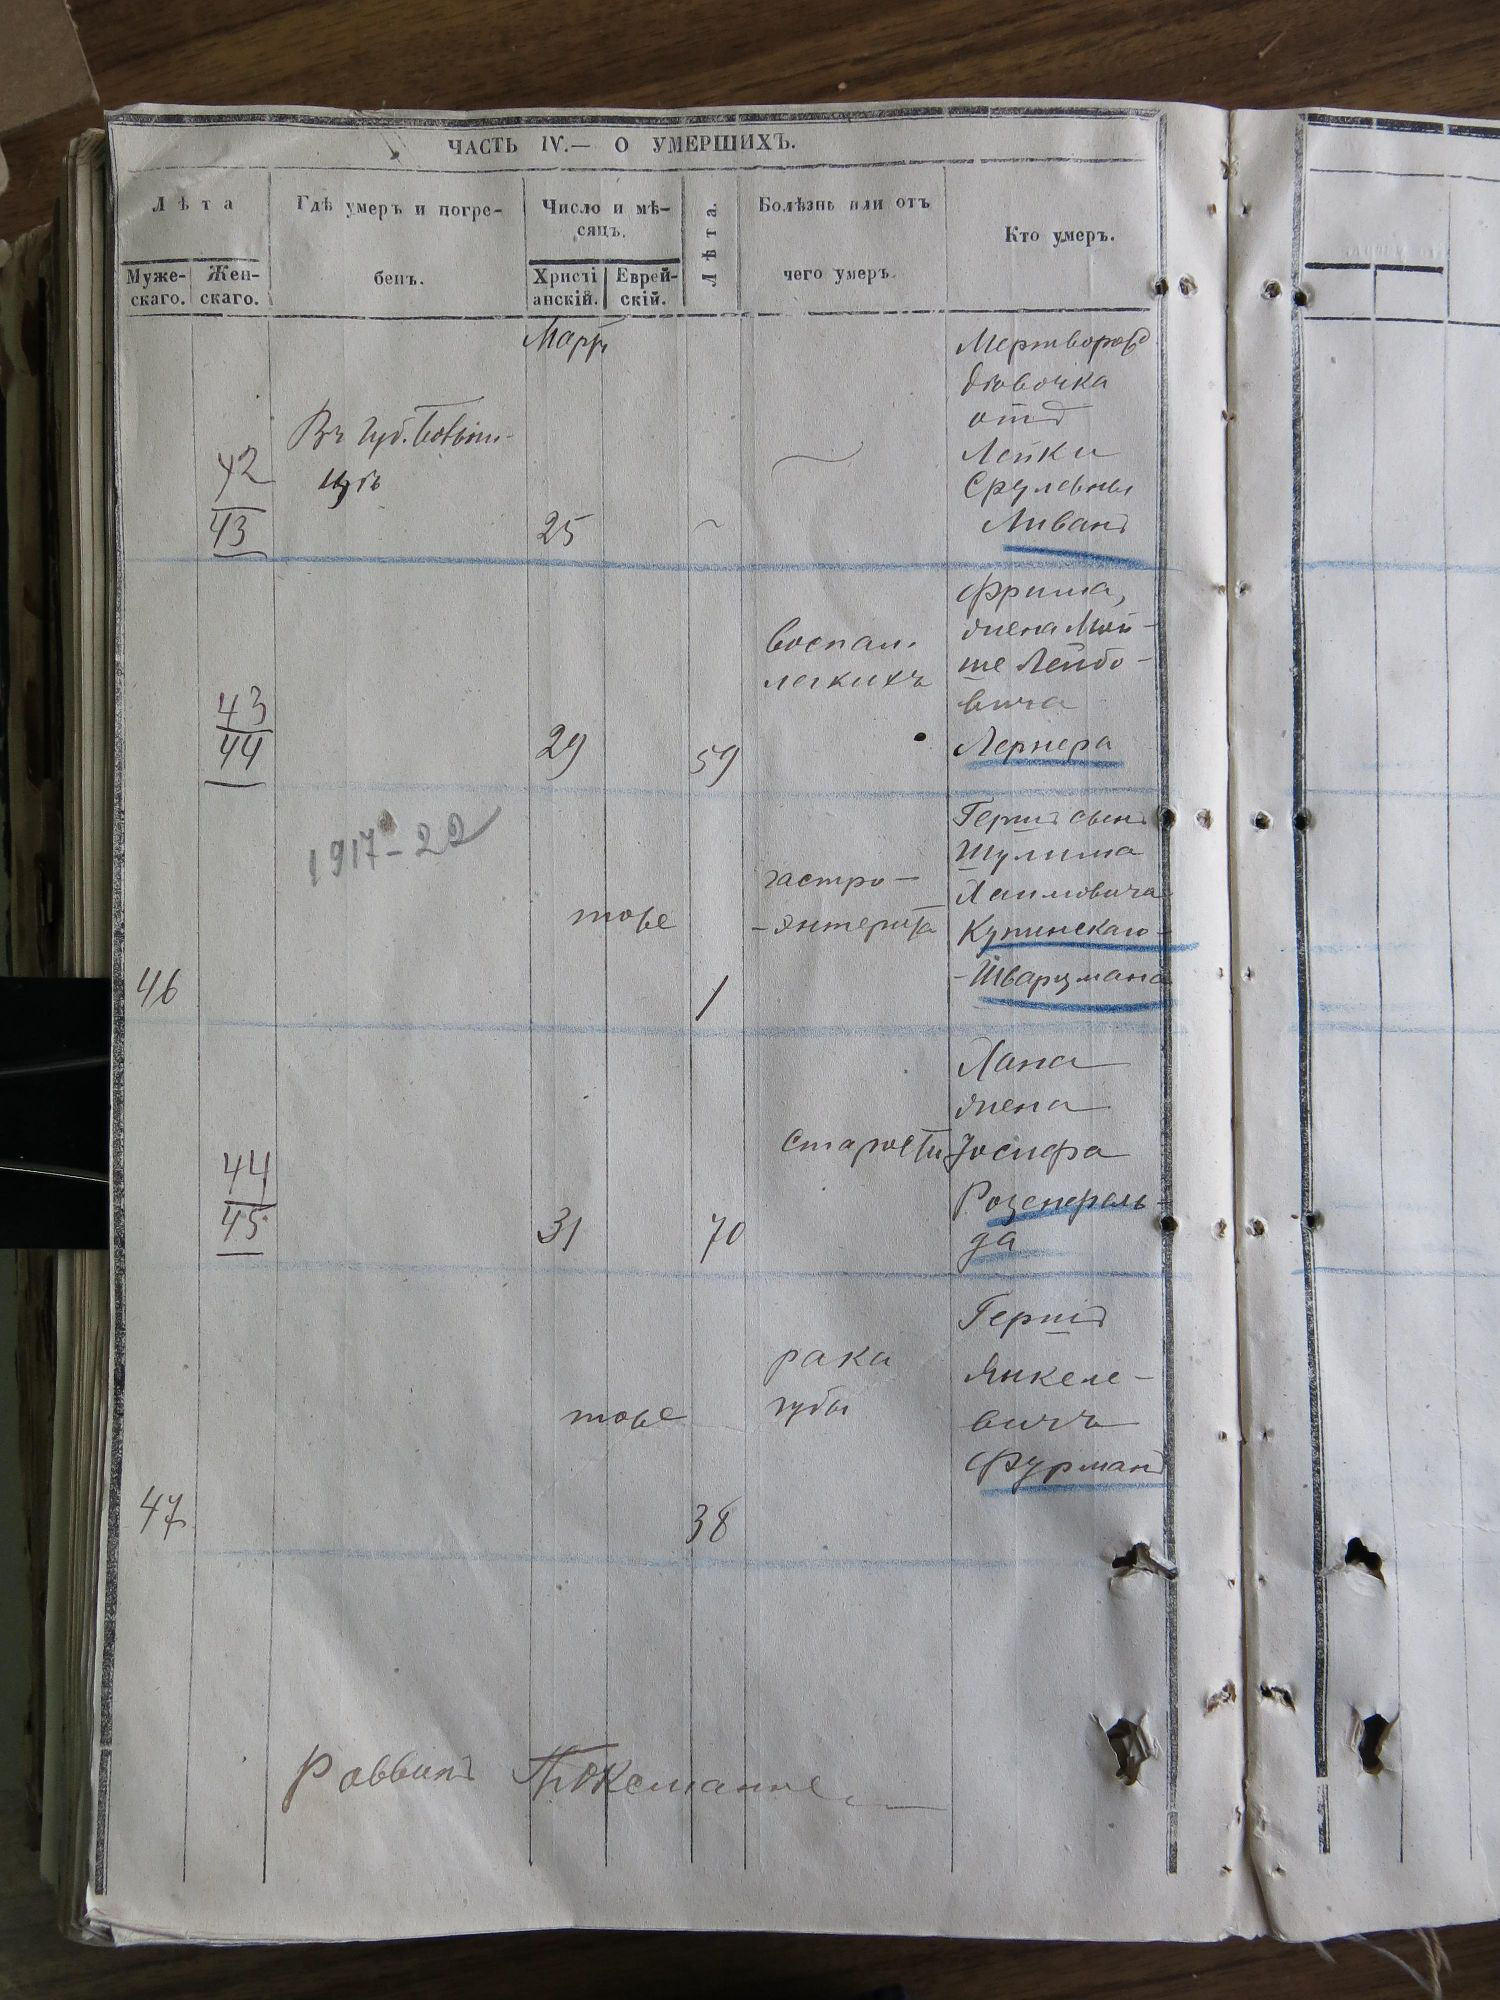 ЧАСТЬ IV.— О УМЕРШИХЪ.
Лѣта
Муже-
скаго.
Жен-
скаго.
Гдѣ умеръ и погре-
бенъ.
Число и мѣ-
сяцъ.
Христі
анскій.
Еврей-
скій.
Лѣта.
Болѣзнь или отъ
чего умеръ.
Кто умеръ.
Мартъ
42
43
Въ Губ.
25
Мертворожд
дѣвочка
отъ
Лейки
Срулевны
Ливанъ
43
44
29
59
воспал.
легкихъ
Фрима,
жена Мой-
ше Лейбо-
вича
Лернера
1917-22
46
тоже
1
гастро-
-энтерита
Гершъ сынъ
Шулима
Хаимовича
Купинскаго-
-Шварцмана
44
45
31
70
старости
Хана
жена
Іосифа
Розенфель-
да
47
тоже
38
рака
губы
Гершъ
Янкеле-
вичъ
Фурманъ
Раввинъ